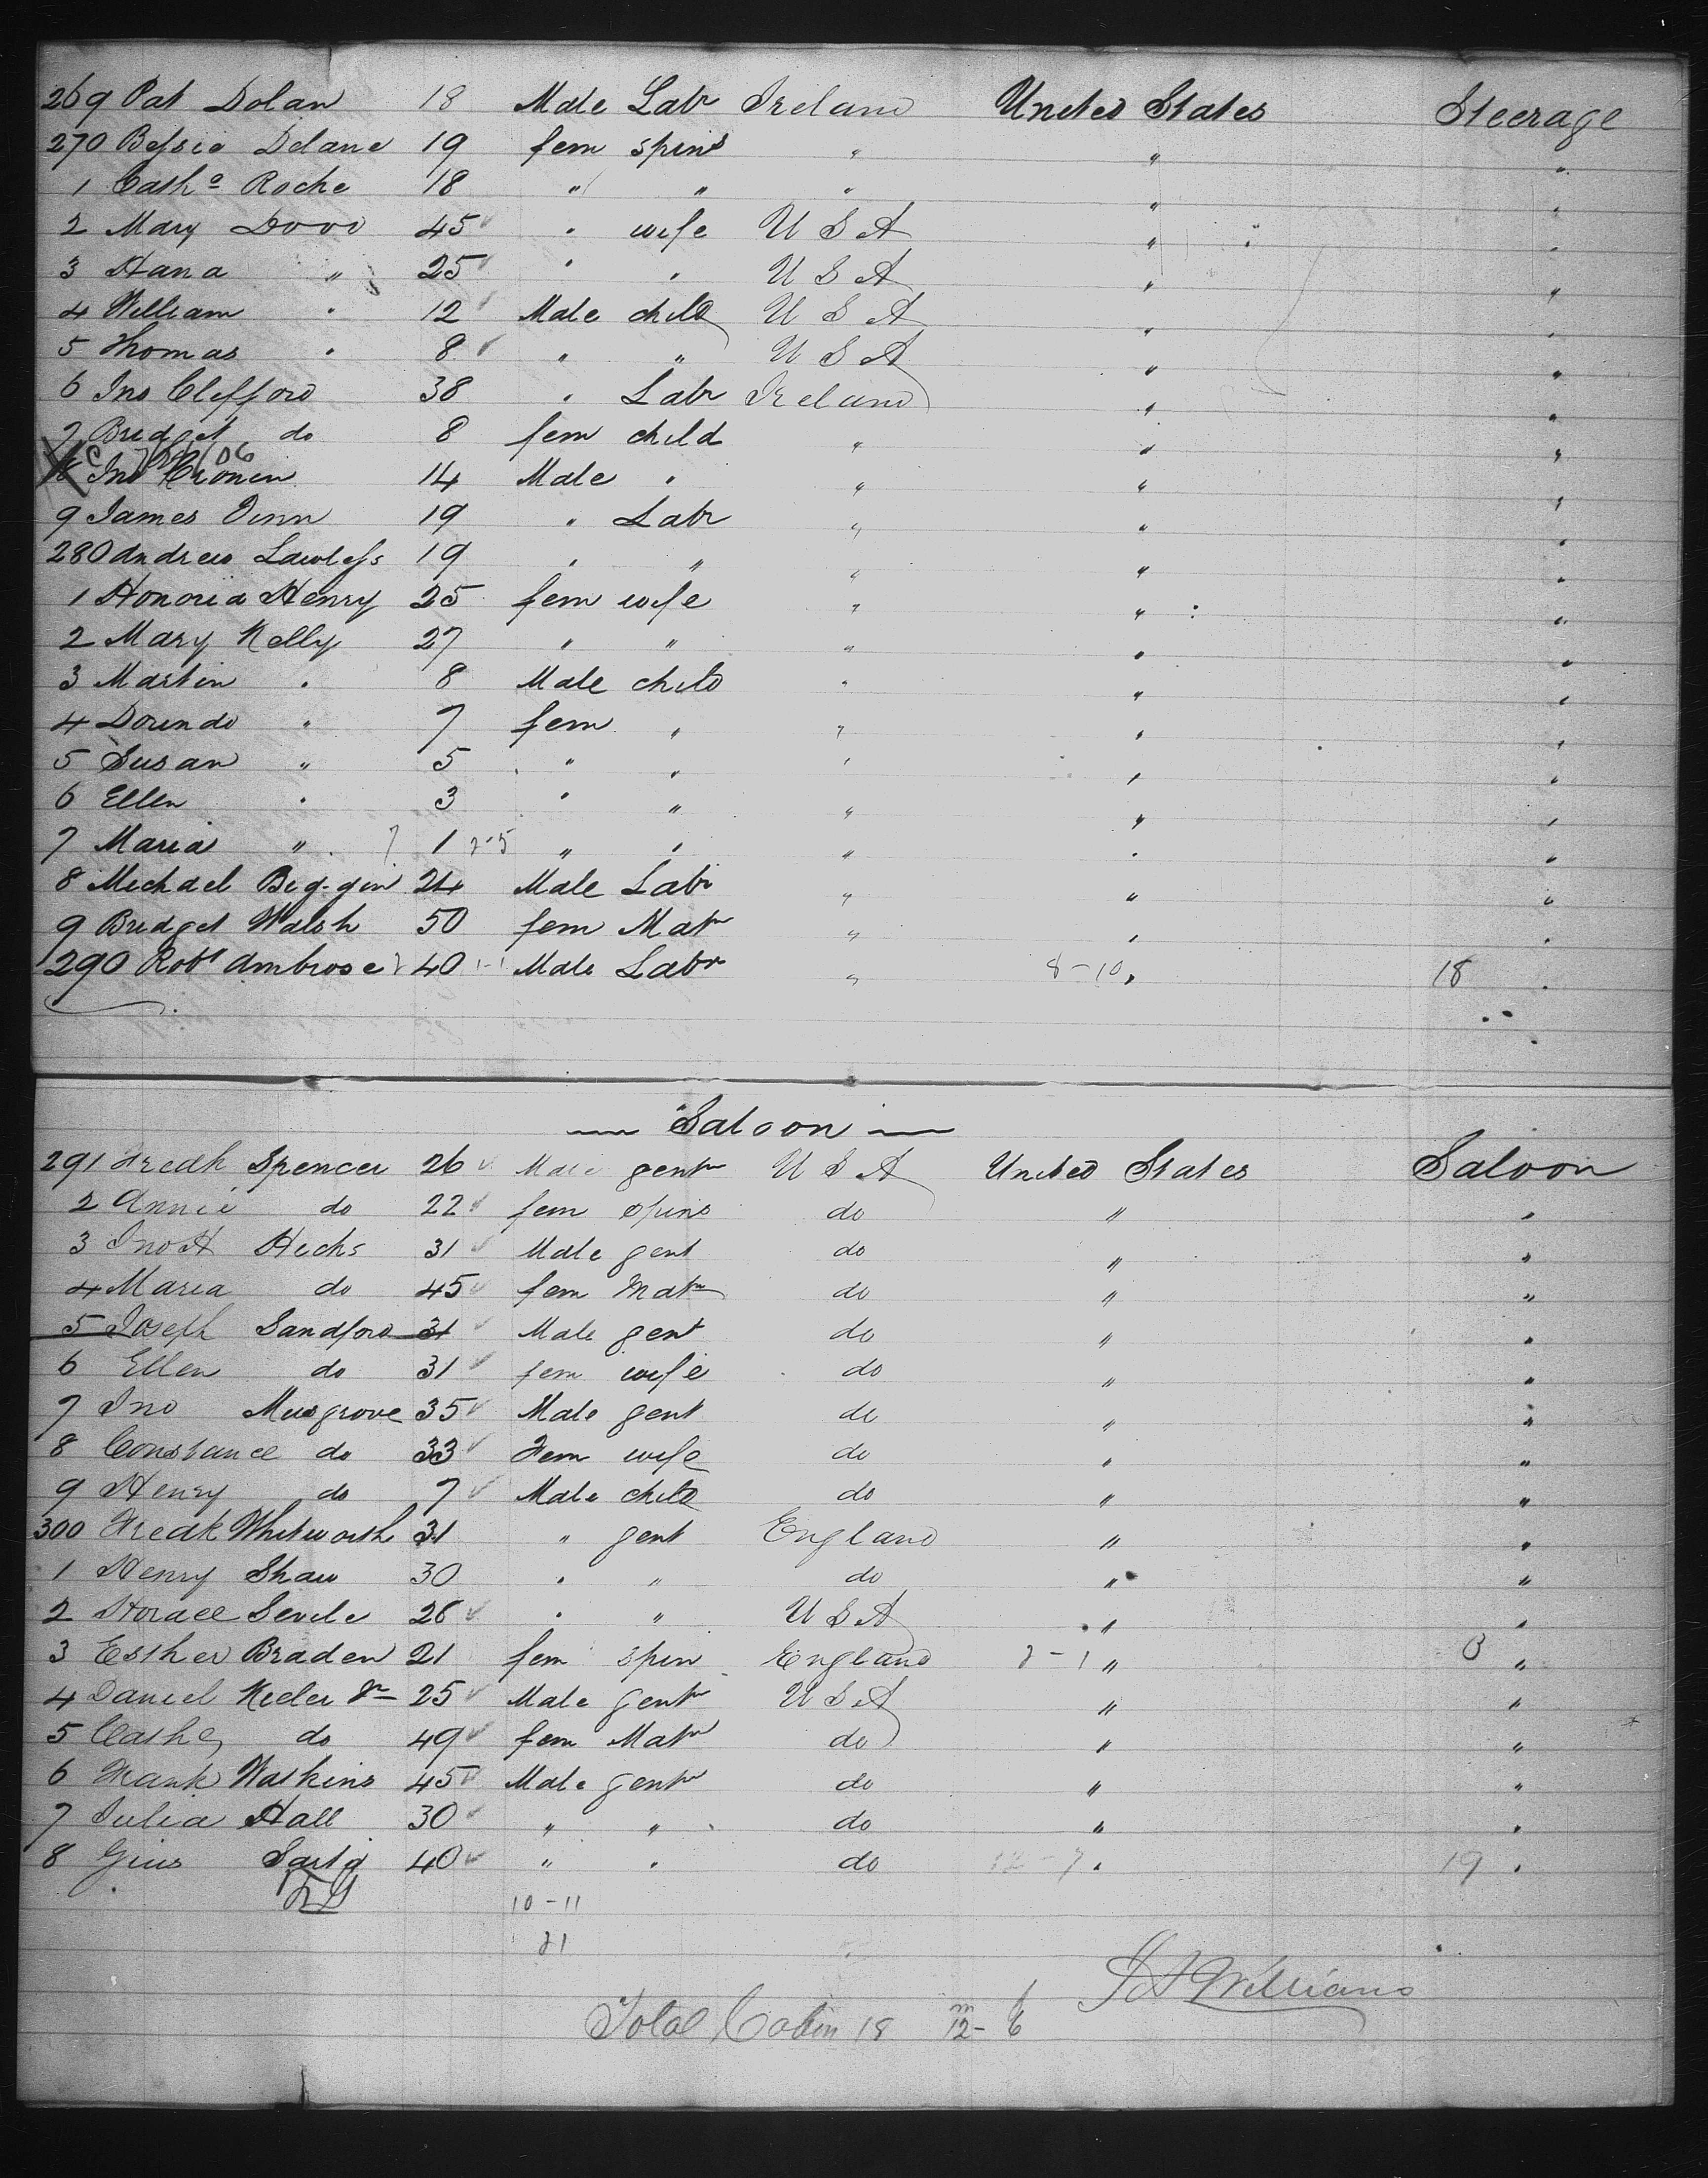 269 Pat Dolan 18 Male Labr Ireland United States Steerage
270 Bessie Delane 19 fem spins " " "
1 Cathe Roche 18 " " " " "
2 Mary Dood 45 " wife U S A " "
3 Hana " 25 " " U S A " "
4 William " 12 Male child U S A " "
5 Thomas " 8 " " U S A " "
6 Jno Clifford 38 " Labr Ireland " "
7 Bridget do 8 fem child " " "
8 Jno Cronin 14 Male " " " "
9 James Dinn 19 " Labr " " "
280 Andrew Lawless 19 " " " " "
1 Honoria Henry 25 fem wife " " "
2 Mary Kelly 27 " " " " "
3 Martin " 8 Male child " " "
4 Dorindo " 7 fem " " " "
5 Susan " 5 " " " " "
6 Ellen " 3 " " " " "
7 Maria " 7 1 2-5 " " " " "
8 Michael Big-gin 24 Male Labr " " "
9 Bridget Walsh 50 fem Matr " " "
290 Robt Ambrose 40 1-1 Male Labr " 8-10 " 18 "
Saloon
291 Fredk Spencer 26 Male gentn U S A United States Saloon
2 Annie do 22 fem spins do " "
3 Jno H Hicks 31 Male gent do " "
4 Maria do 45 fem Matn do " "
5 Joseph Sandford 31 Male gent do " "
6 Ellen do 31 fem wife do " "
7 Jno Musgrove 35 Male gent do " "
8 Constance do 33 Fem wife do " "
9 Henry do 7 Male child do " "
300 Fredk Whitworth 31 " gent England " "
1 Henry Shaw 30 " " do " "
2 Horace Sevile 26 " " U S A " "
3 Esther Braden 21 fem spin England 2-1 " 3 "
4 Daniel Keeler Jr 25 Male gentn U S A " "
5 Cathe do 49 fem Matn do " "
6 Frank Watkins 45 Male gentn do " "
7 Julia Hall 30 " " do " "
8 Gius 40 " " do 12-7 " 19 "
10-11
21
J A Williams
Total Cabin 18 m 12- f 6